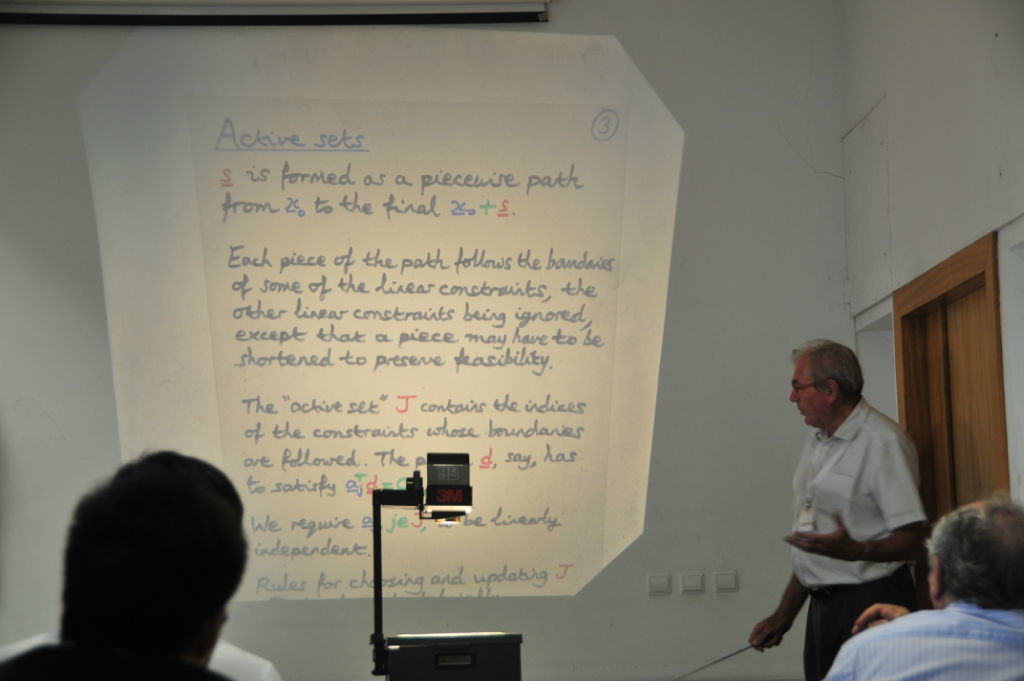 Active sets ③
s is formed as a piecewise path
from x₀ to the final x₀+s.
Each piece of the path follows the boundaries
of some of the linear constraints, the
other linear constraints being ignored,
except that a piece may have to be
shortened to preserve feasibility.
The "active set" J contains the indices
of the constraints whose boundaries
are followed. The d, say, has
to satisfy aⱼᵀd=
We require j∈J, be linearly
independent.
Rules for choosing and updating J
3M